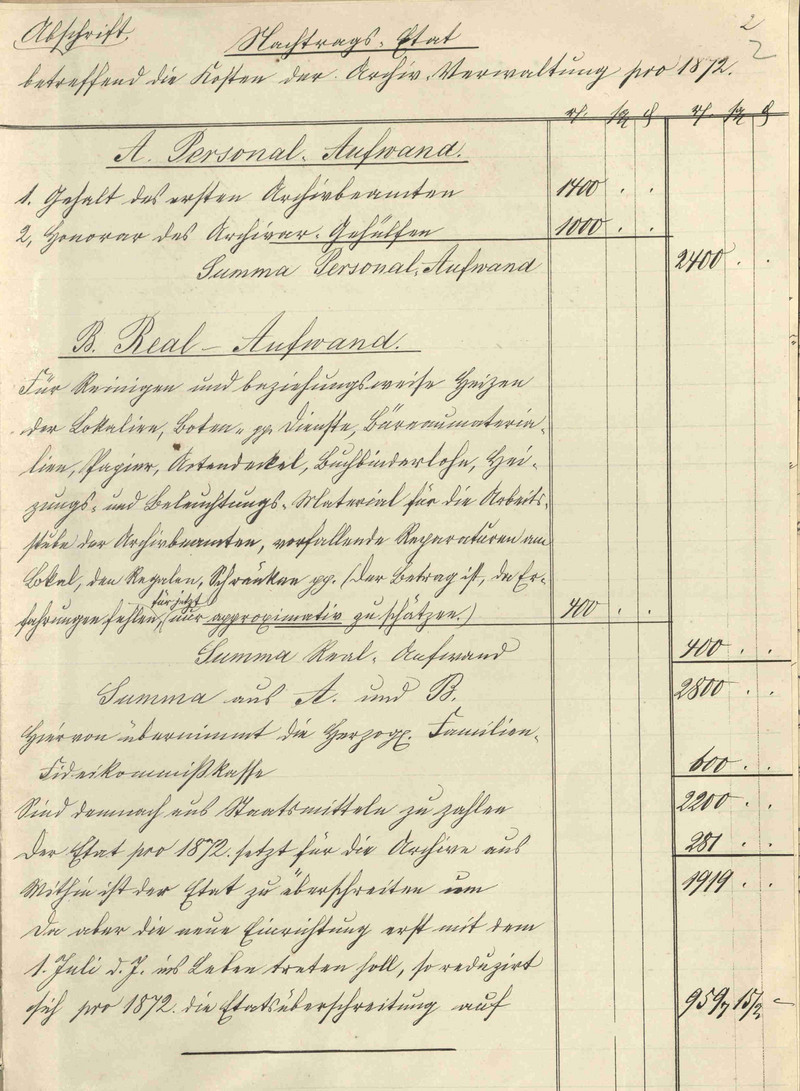 2
Abschrift.
2
Nachtrags-Etat
betreffend die Kosten der Archiv-Verwaltung pro 1872.
A. Personal-Aufwand.
1. Gehalt des ersten Archivbeamten 1400 . .
2, Honorar des Archivar-Gehülfen 1000 . .
Summa Personal-Aufwand 2400 . .
B. Real-Aufwand.
Für Reinigen und beziehungsweise Heizen
der Lokalien, Boten- pp. Dienste, Büreaumateria-
lien, Papier, Actendeckel, Buchbinderlohn, Hei-
zungs- und Beleuchtungs-Material für die Arbeits-
stube der Archivbeamten, vorfallende Reparaturen am
Lokal, den Regalen, Schränken pp. (Der Betrag ist, da Er-
für jetzt
fahrungen fehlen, nur approximativ zu schätzen.) 400 . .
Summa Real-Aufwand 400 . .
Summa aus A. und B. 2800 . .
Hiervon übernimmt die Herzogl. Familien-
Fideikommißkasse 600 . .
Sind demnach aus Staatsmitteln zu zahlen 2200 . .
Der Etat pro 1872. setzt für die Archive aus 281 . .
Mithin ist der Etat zu überschreiten um 1919 . .
Da aber die neue Einrichtung erst mit dem
1. Juli d. J. ins Leben treten soll, so reduzirt
sich pro 1872. die Etatsüberschreitung auf 959 15